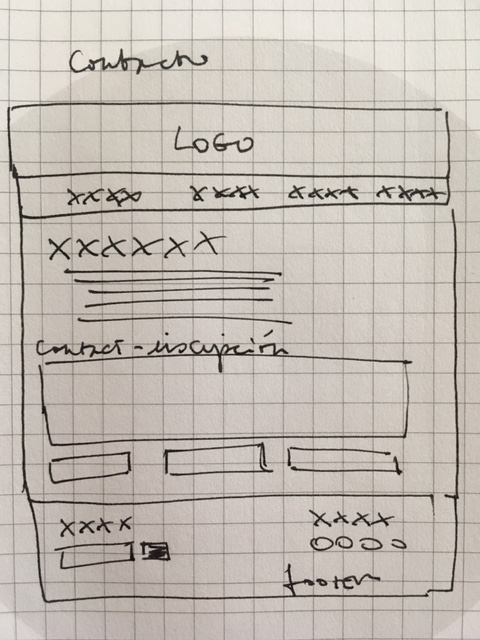 Contacto
LOGO
xxxx xxxx xxxx xxxx
XXXXXXX
Contact-inscripción
XXXX XXXX
footer